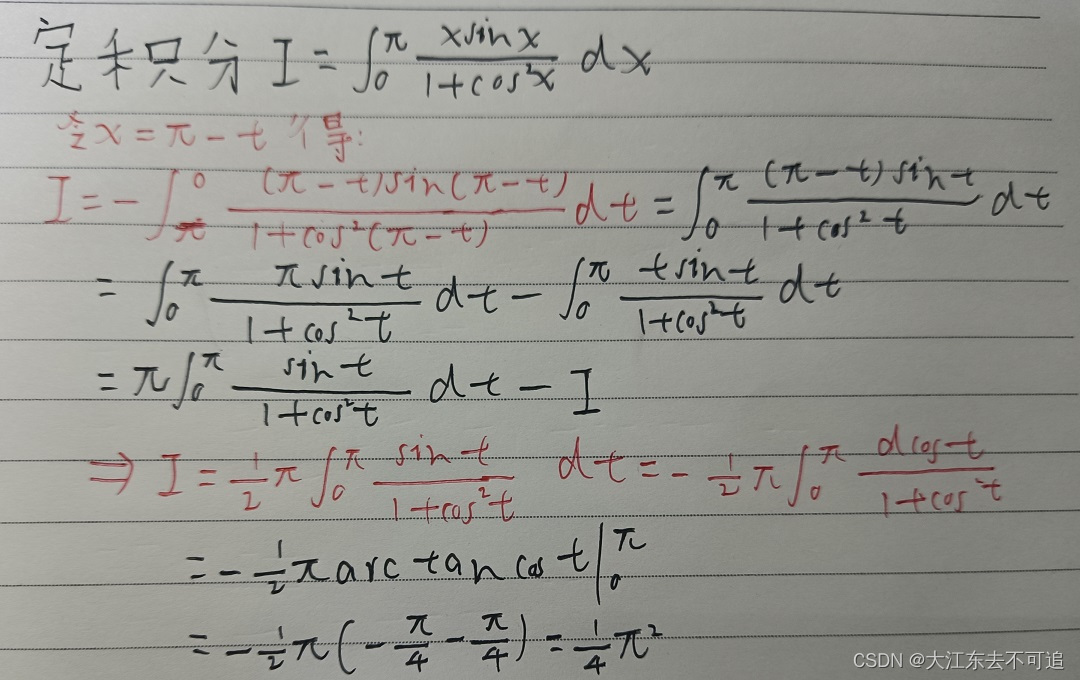 定积分 I = ∫₀^π (x sin x)/(1+cos²x) dx
令x = π - t 得:
I = -∫_π^0 ((π-t)sin(π-t))/(1+cos²(π-t)) dt = ∫₀^π ((π-t) sin t)/(1+cos² t) dt
= ∫₀^π (π sin t)/(1+cos² t) dt - ∫₀^π (t sin t)/(1+cos² t) dt
= π∫₀^π (sin t)/(1+cos² t) dt - I
⇒ I = 1/2 π ∫₀^π (sin t)/(1+cos² t) dt = - 1/2 π ∫₀^π (d cos t)/(1+cos² t)
= - 1/2 π arc tan cos t |₀^π
= - 1/2 π (- π/4 - π/4) = 1/4 π²
CSDN @大江东去不可追